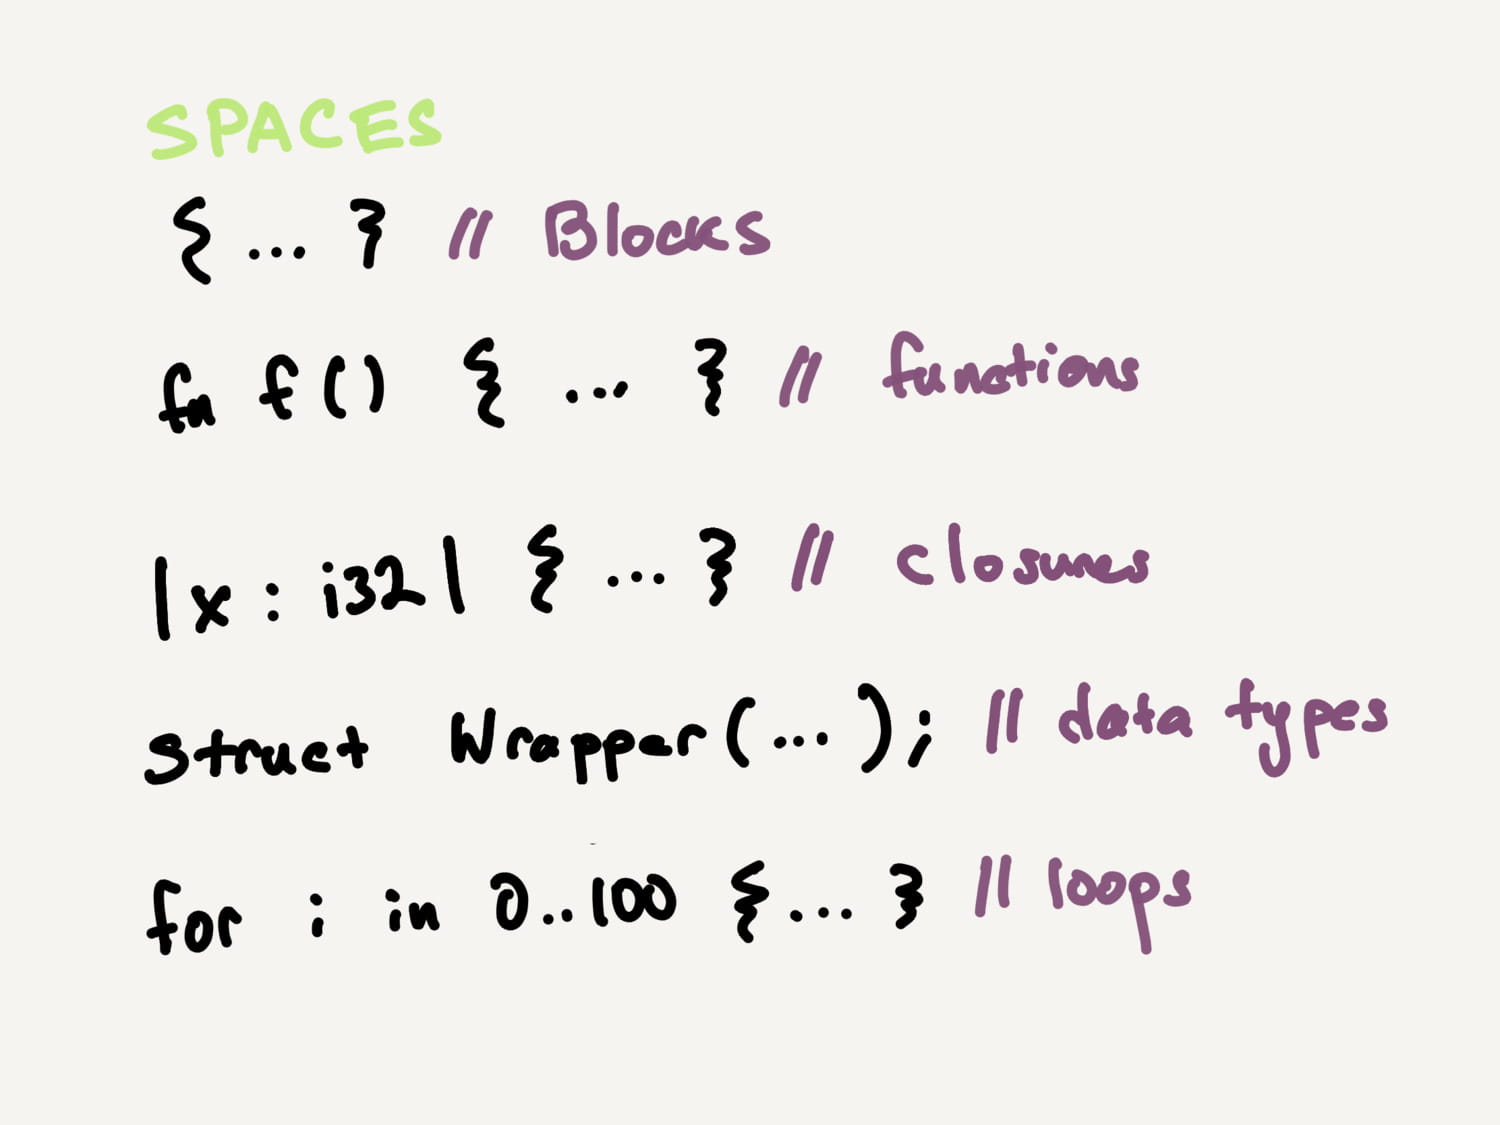 SPACES
{ ... } // Blocks
fn f() { ... } // functions
|x : i32| { ... } // closures
struct Wrapper(...); // data types
for i in 0..100 { ... } // loops